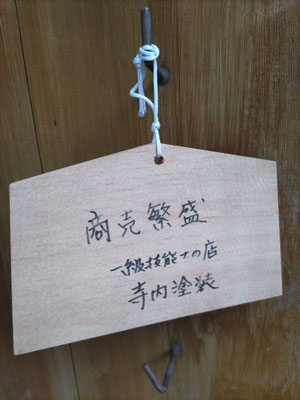 商売繁盛
一級技能士の店
寺内塗装